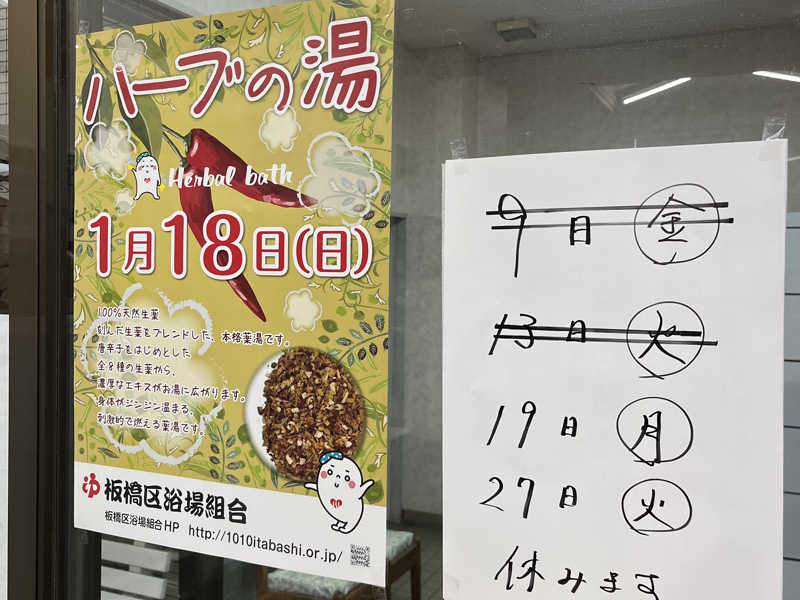 ハーブの湯
Herbal bath
1月18日(日)
100%天然生薬
刻んだ生薬をブレンドした、本格薬湯です。
唐辛子をはじめとした
全8種の生薬から、
濃厚なエキスがお湯に広がります。
身体がジンジン温まる、
刺激的で燃える薬湯です。
板橋区浴場組合
板橋区浴場組合HP http://1010itabashi.or.jp/
9日 金
13日 火
19日 月
27日 火
休みます